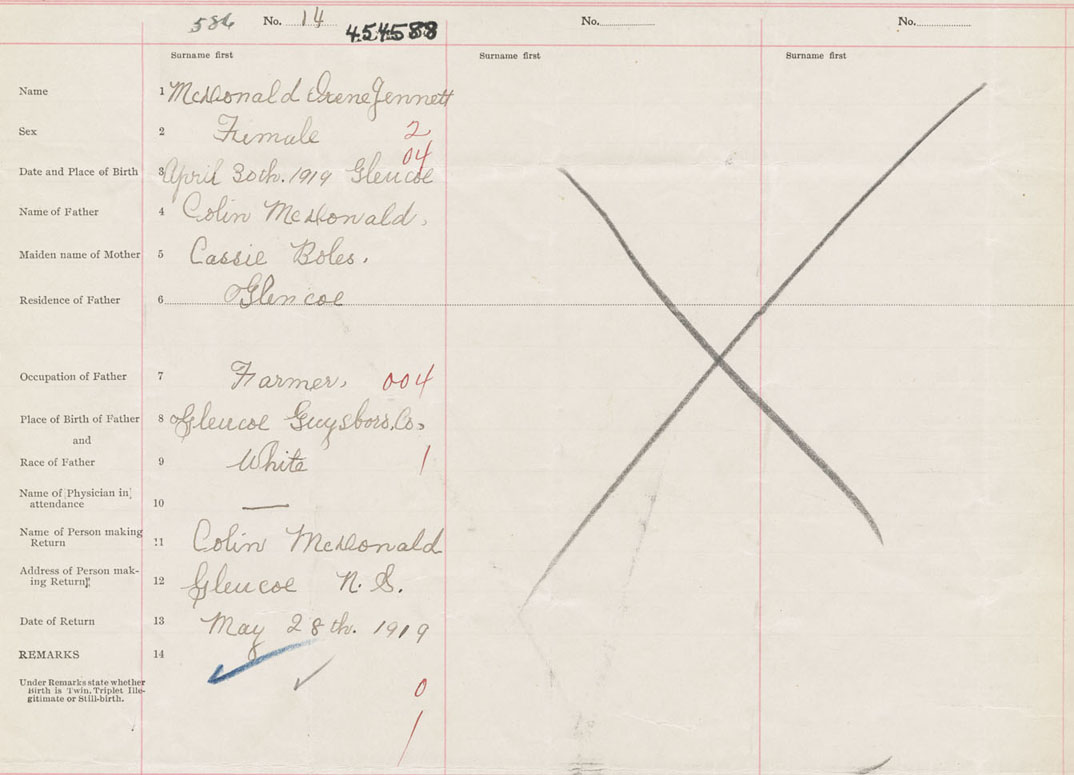 586 No. 14 454588 No. No.
Surname first Surname first Surname first
Name 1 McDonald Irene Jennett
Sex 2 Female 2
04
Date and Place of Birth 3 April 30th. 1919 Glencoe
Name of Father 4 Colin McDonald,
Maiden name of Mother 5 Cassie Boles.
Residence of Father 6 Glencoe
Occupation of Father 7 Farmer, 004
Place of Birth of Father 8 Glencoe Guysboro, Co,
and
Race of Father 9 White 1
Name of Physician in
attendance 10 —
Name of Person making
Return 11 Colin McDonald
Address of Person mak-
ing Return 12 Glencoe N. S.
Date of Return 13 May 28th. 1919
REMARKS 14
Under Remarks state whether
Birth is Twin, Triplet Ille-
gitimate or Still-birth.
0
1